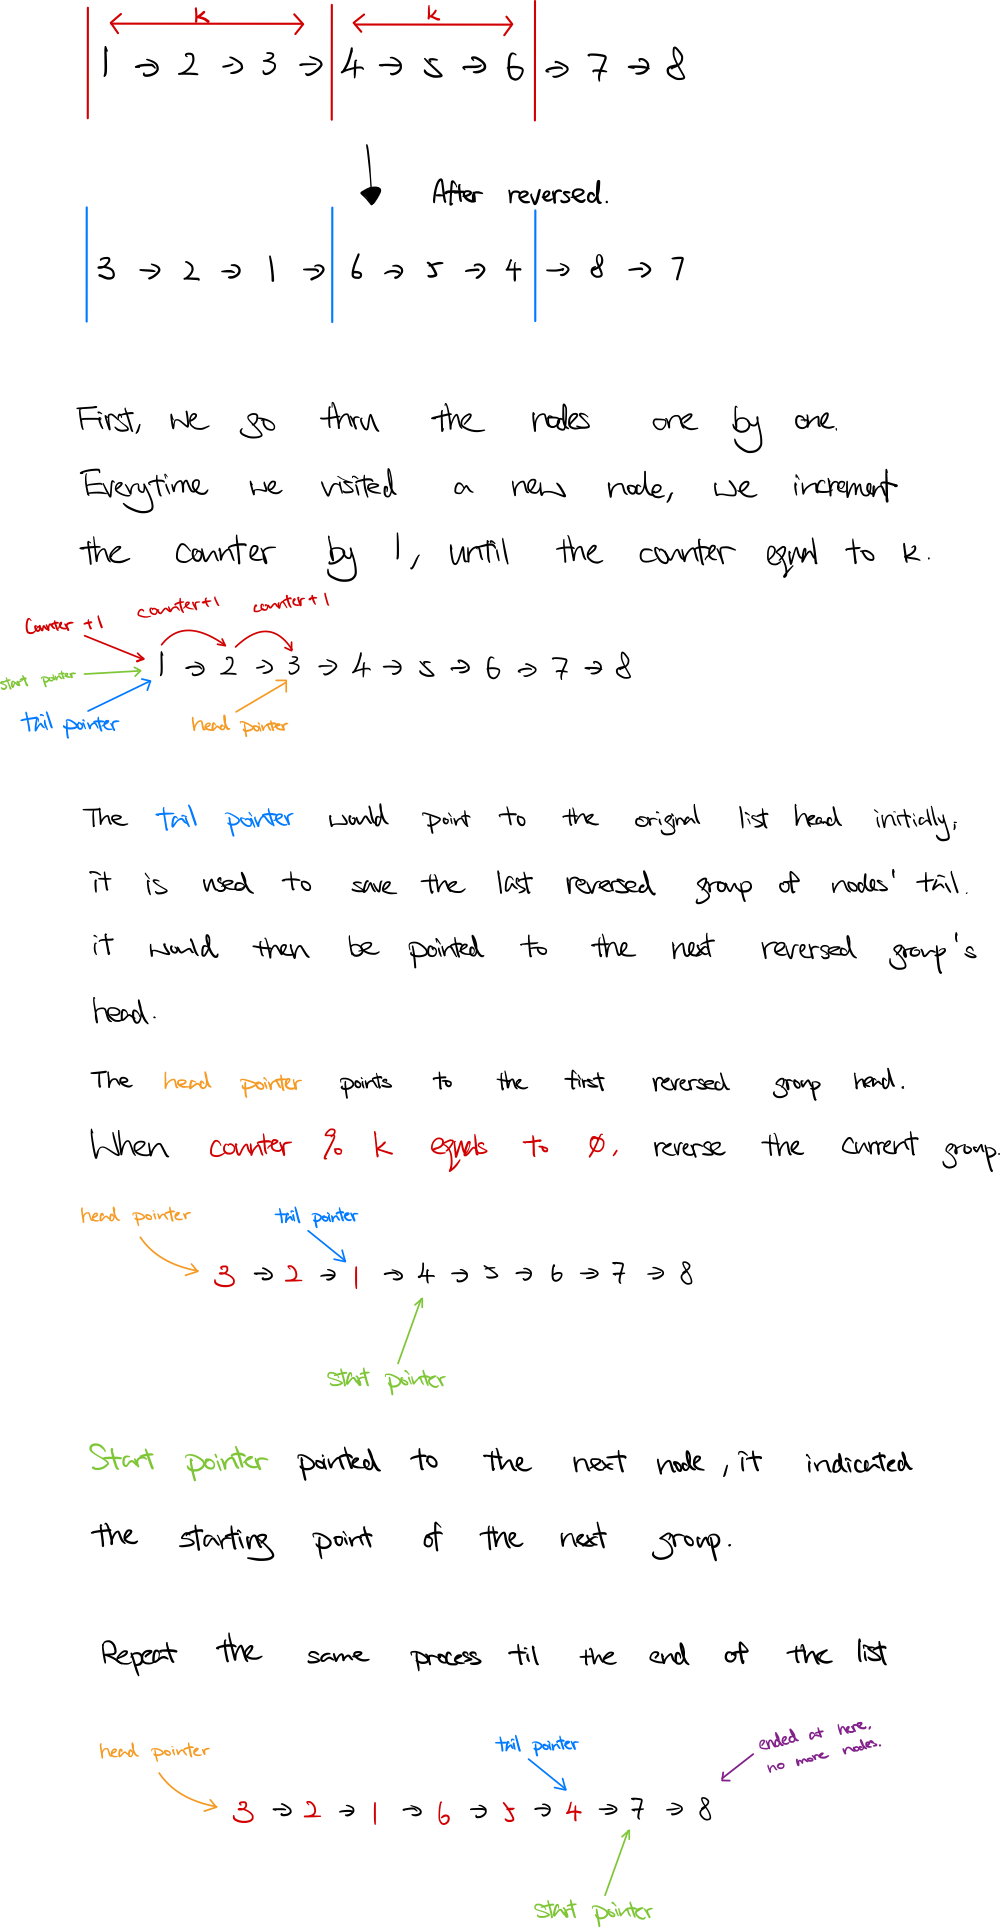 k k
1 → 2 → 3 → 4 → 5 → 6 → 7 → 8
After reversed.
3 → 2 → 1 → 6 → 5 → 4 → 8 → 7
First, we go thru the nodes one by one.
Everytime we visited a new node, we increment
the counter by 1, until the counter equal to k.
Counter +1 counter+1 counter+1
1 → 2 → 3 → 4 → 5 → 6 → 7 → 8
start pointer
tail pointer head pointer
The tail pointer would point to the original list head initially,
it is used to save the last reversed group of nodes' tail.
it would then be pointed to the next reversed group's
head.
The head pointer points to the first reversed group head.
When counter % k equals to 0, reverse the current group.
head pointer tail pointer
3 → 2 → 1 → 4 → 5 → 6 → 7 → 8
start pointer
Start pointer pointed to the next node, it indicated
the starting point of the next group.
Repeat the same process til the end of the list
head pointer tail pointer
ended at here,
no more nodes.
3 → 2 → 1 → 6 → 5 → 4 → 7 → 8
start pointer